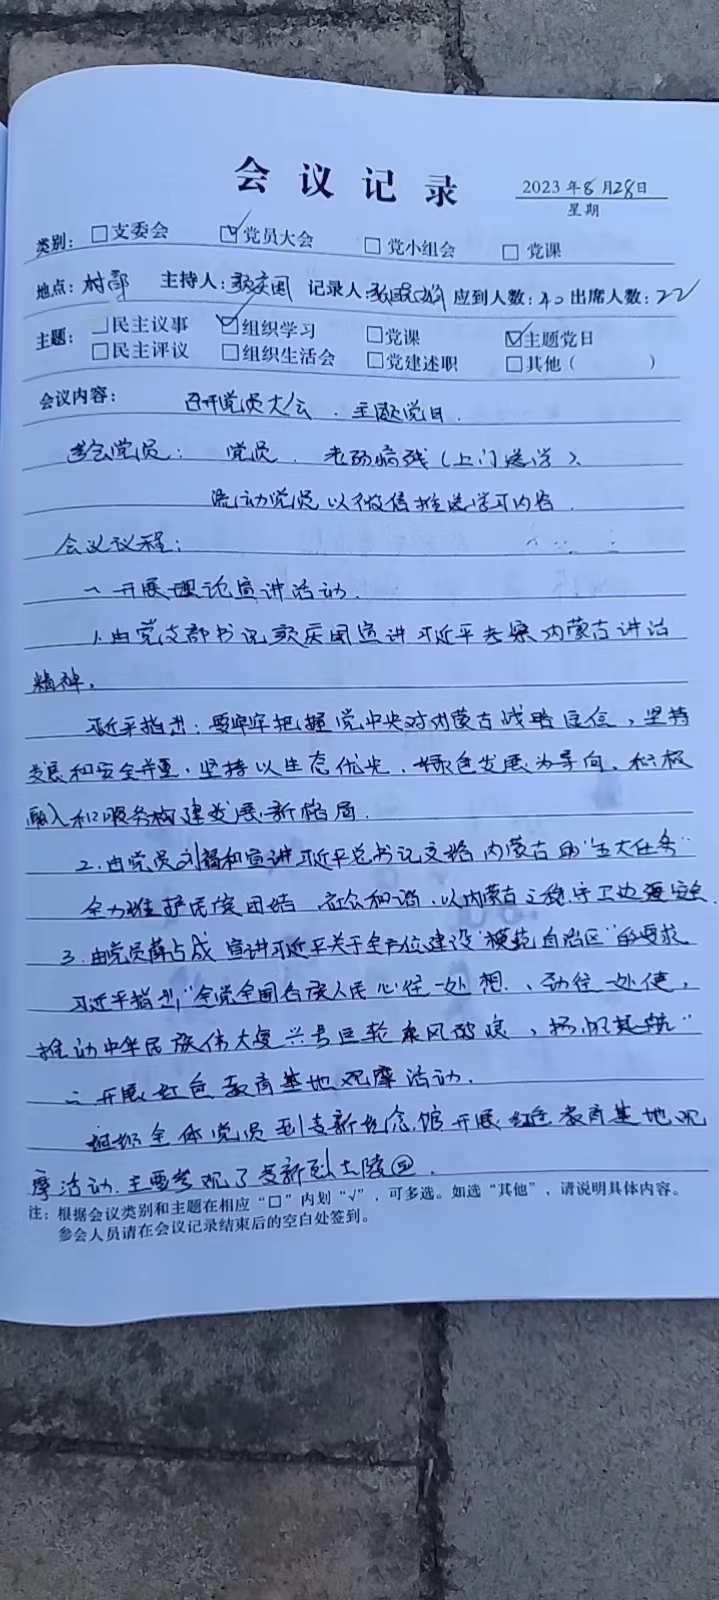 会议记录
2023年6月28日
星期
类别: □支委会 ☑党员大会 □党小组会 □党课
地点: 村部 主持人: 记录人: 应到人数: 40 出席人数: 22
主题: □民主议事 ☑组织学习 □党课 ☑主题党日
□民主评议 □组织生活会 □党建述职 □其他( )
会议内容: 召开党员大会、主题党日.
参会党员: 党员、老弱病残(上门送学)、
流动党员以微信推送学习内容.
会议议程:
一、开展理论宣讲活动.
1.由党支部书记 庆国宣讲习近平考察内蒙古讲话
精神.
习近平指出:要牢牢把握党中央对内蒙古战略定位,坚持
发展和安全并重,坚持以生态优先、绿色发展为导向,积极
融入和服务构建发展新格局.
2.由党员刘福和宣讲习近平总书记交给内蒙古的“五大任务”
全力维护民族团结 社会和谐,以内蒙古之稳守卫边疆安全.
3.由党员薛占成 宣讲习近平关于全方位建设“模范自治区”的要求
习近平指出,“全党全国各族人民心往一处想、劲往一处使,
推动中华民族伟大复兴号巨轮乘风破浪,扬帆其航”
二、开展红色教育基地观摩活动.
组织全体党员到 新纪念馆开展红色教育基地观
摩活动.主要参观了 新烈士陵园.
注: 根据会议类别和主题在相应“□”内划“√”,可多选。如选“其他”,请说明具体内容。
参会人员请在会议记录结束后的空白处签到。